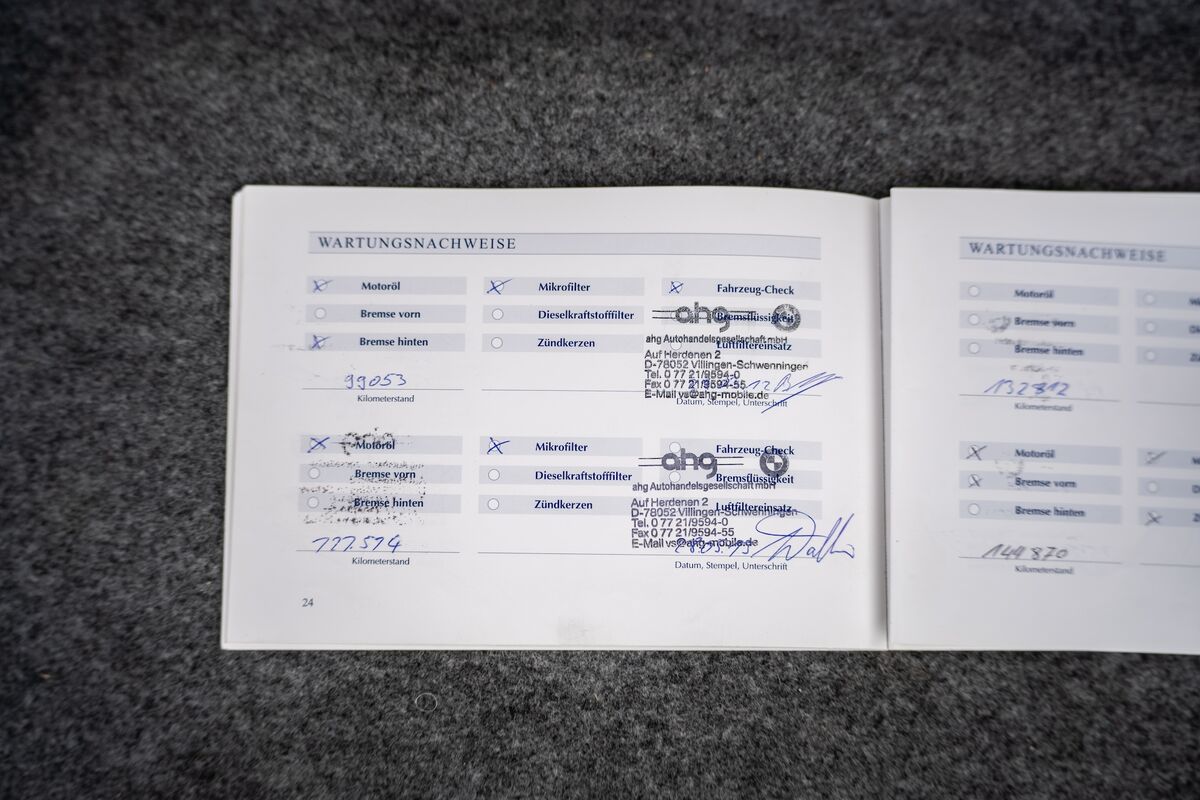 WARTUNGSNACHWEISE
Motoröl Mikrofilter Fahrzeug-Check
Bremse vorn Dieselkraftstofffilter Bremsflüssigkeit
Bremse hinten Zündkerzen Luftfiltereinsatz
ahg
ahg Autohandelsgesellschaft mbH
Auf Herdenen 2
D-78052 Villingen-Schwenningen
Tel. 0 77 21/9594-0
Fax 0 77 21/9594-55
E-Mail vs@ahg-mobile.de
99053
Kilometerstand Datum, Stempel, Unterschrift
Motoröl Mikrofilter Fahrzeug-Check
Bremse vorn Dieselkraftstofffilter Bremsflüssigkeit
Bremse hinten Zündkerzen Luftfiltereinsatz
ahg
ahg Autohandelsgesellschaft mbH
Auf Herdenen 2
D-78052 Villingen-Schwenningen
Tel. 0 77 21/9594-0
Fax 0 77 21/9594-55
E-Mail vs@ahg-mobile.de
Kilometerstand Datum, Stempel, Unterschrift
24
WARTUNGSNACHWEISE
Motoröl
Bremse vorn
Bremse hinten
132812
Kilometerstand
Motoröl
Bremse vorn
Bremse hinten
144870
Kilometerstand